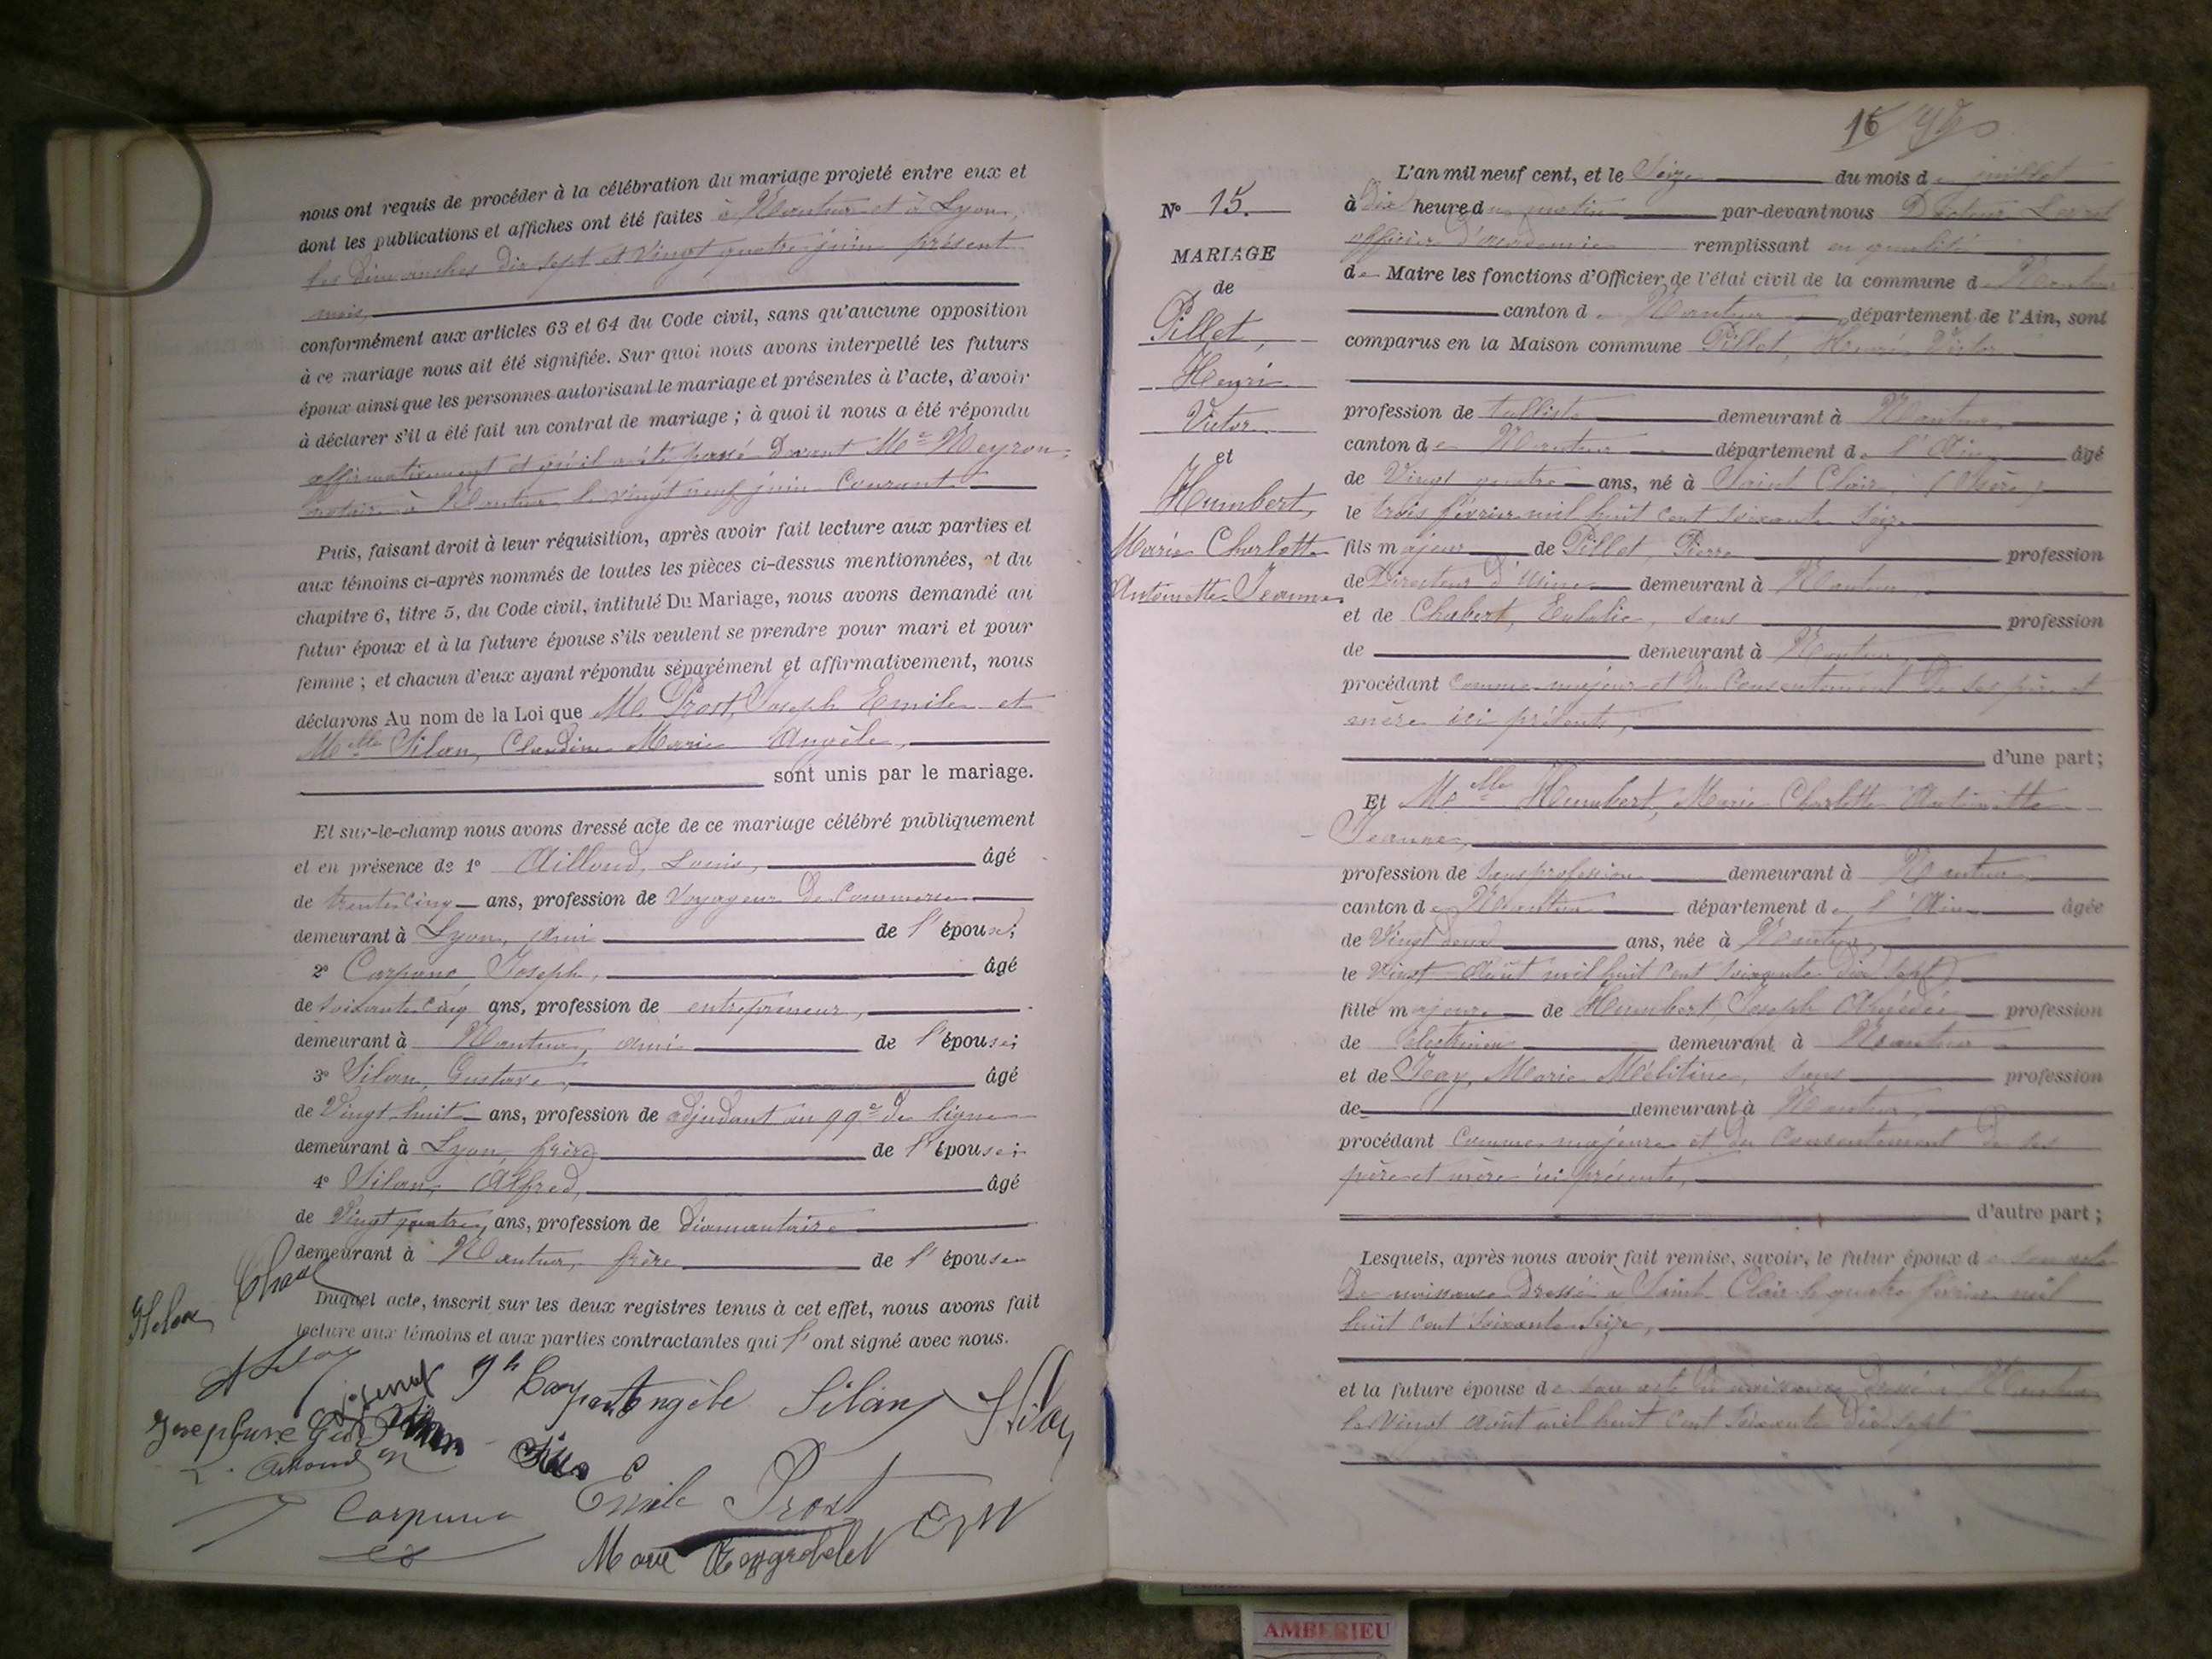 nous ont requis de procéder à la célébration du mariage projeté entre eux et
dont les publications et affiches ont été faites à Nantua et à Lyon,
les dimanches dix sept et vingt quatre juin présent
mois,
conformément aux articles 63 et 64 du Code civil, sans qu'aucune opposition
à ce mariage nous ait été signifiée. Sur quoi nous avons interpellé les futurs
époux ainsi que les personnes autorisant le mariage et présentes à l'acte, d'avoir
à déclarer s'il a été fait un contrat de mariage ; à quoi il nous a été répondu
affirmativement et qu'il a été passé devant Me Neyron,
notaire à Nantua le vingt neuf juin courant
Puis, faisant droit à leur réquisition, après avoir fait lecture aux parties et
aux témoins ci-après nommés de toutes les pièces ci-dessus mentionnées, et du
chapitre 6, titre 5, du Code civil, intitulé Du Mariage, nous avons demandé au
futur époux et à la future épouse s'ils veulent se prendre pour mari et pour
femme ; et chacun d'eux ayant répondu séparément et affirmativement, nous
déclarons Au nom de la Loi que M. Prost, Joseph Emile et
Melle Silan, Claudine Marie Angèle,
sont unis par le mariage.
Et sur-le-champ nous avons dressé acte de ce mariage célébré publiquement
et en présence de 1° Ailloud, Louis, âgé
de trente cinq ans, profession de voyageur de Commerce
demeurant à Lyon, ami de l'époux;
2° Carpano, Joseph, âgé
de soixante cinq ans, profession de entrepreneur,
demeurant à Nantua, ami de l'épouse;
3° Silan, Gustave, âgé
de vingt huit ans, profession de adjudant au 99e de ligne
demeurant à Lyon, frère de l'épouse;
4° Silan, Alfred, âgé
de vingt quatre ans, profession de diamantaire
demeurant à Nantua, frère de l'épouse
Duquel acte, inscrit sur les deux registres tenus à cet effet, nous avons fait
lecture aux témoins et aux parties contractantes qui l'ont signé avec nous.
Angèle Silan
Emile Prost
Marie
16
N° 15.
MARIAGE
de
Pillet,
Henri
Victor
et
Humbert,
Marie Charlotte
Antoinette Jeanne
L'an mil neuf cent, et le Seize du mois de juillet
à dix heures du matin par-devant nous Docteur
officier d'académie remplissant en qualité
de Maire les fonctions d'Officier de l'état civil de la commune de Nantua
canton de Nantua, département de l'Ain, sont
comparus en la Maison commune Pillet, Henri Victor
profession de tulliste demeurant à Nantua
canton de Nantua département de l'Ain âgé
de vingt quatre ans, né à Saint Clair, (Isère)
le trois février mil huit cent soixante seize
fils majeur de Pillet, Pierre profession
de Directeur d'usine demeurant à Nantua
et de Chabert, Eulalie, sans profession
de demeurant à Nantua,
procédant comme majeur et du consentement de ses père et
mère ici présents,
d'une part;
Et Melle Humbert, Marie Charlotte Antoinette
Jeanne,
profession de sans profession demeurant à Nantua
canton de Nantua département de l'Ain âgée
de vingt deux ans, née à Nantua,
le vingt août mil huit cent soixante dix sept
fille majeure de Humbert, Joseph Amédée profession
de électricien demeurant à Nantua
et de Jay, Marie Mélitine, sans profession
de demeurant à Nantua,
procédant comme majeure et du consentement de ses
père et mère ici présents,
d'autre part;
Lesquels, après nous avoir fait remise, savoir, le futur époux de son acte
de naissance dressé à Saint Clair le quatre février mil
huit cent soixante seize,
et la future épouse de son acte de naissance dressé à Nantua
le vingt août mil huit cent soixante dix sept
AMBERIEU